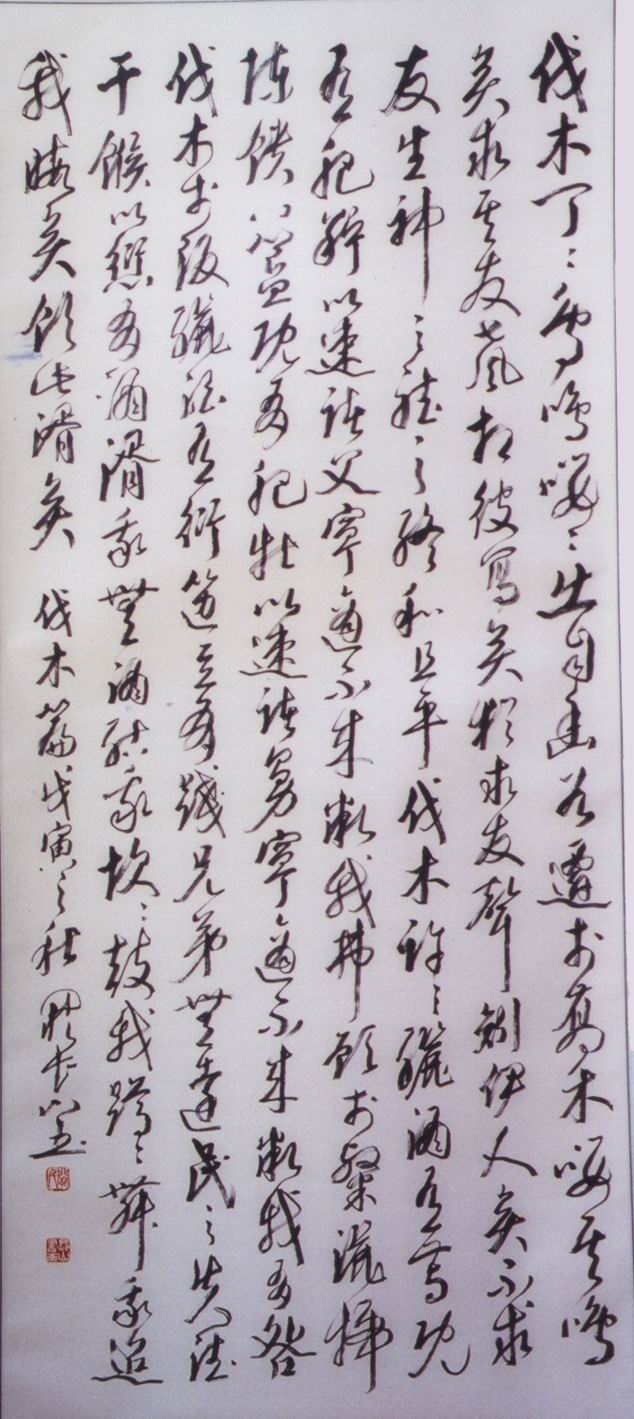 伐木丁〻鳥鳴嚶〻出自幽谷遷于喬木嚶其鳴
矣求其友聲相彼鳥矣猶求友聲矧伊人矣不求
友生神之聽之終和且平伐木許〻釃酒有藇既
有肥羜以速諸父寧適不來微我弗顧於粲洒掃
陳饋八簋既有肥牡以速諸舅寧適不來微我有咎
伐木于阪釃酒有衍籩豆有踐兄弟無遠民之失德
干餱以愆有酒湑我無酒酤我坎〻鼓我蹲〻舞我迨
我暇矣飲此湑矣 伐木篇 戊寅之秋